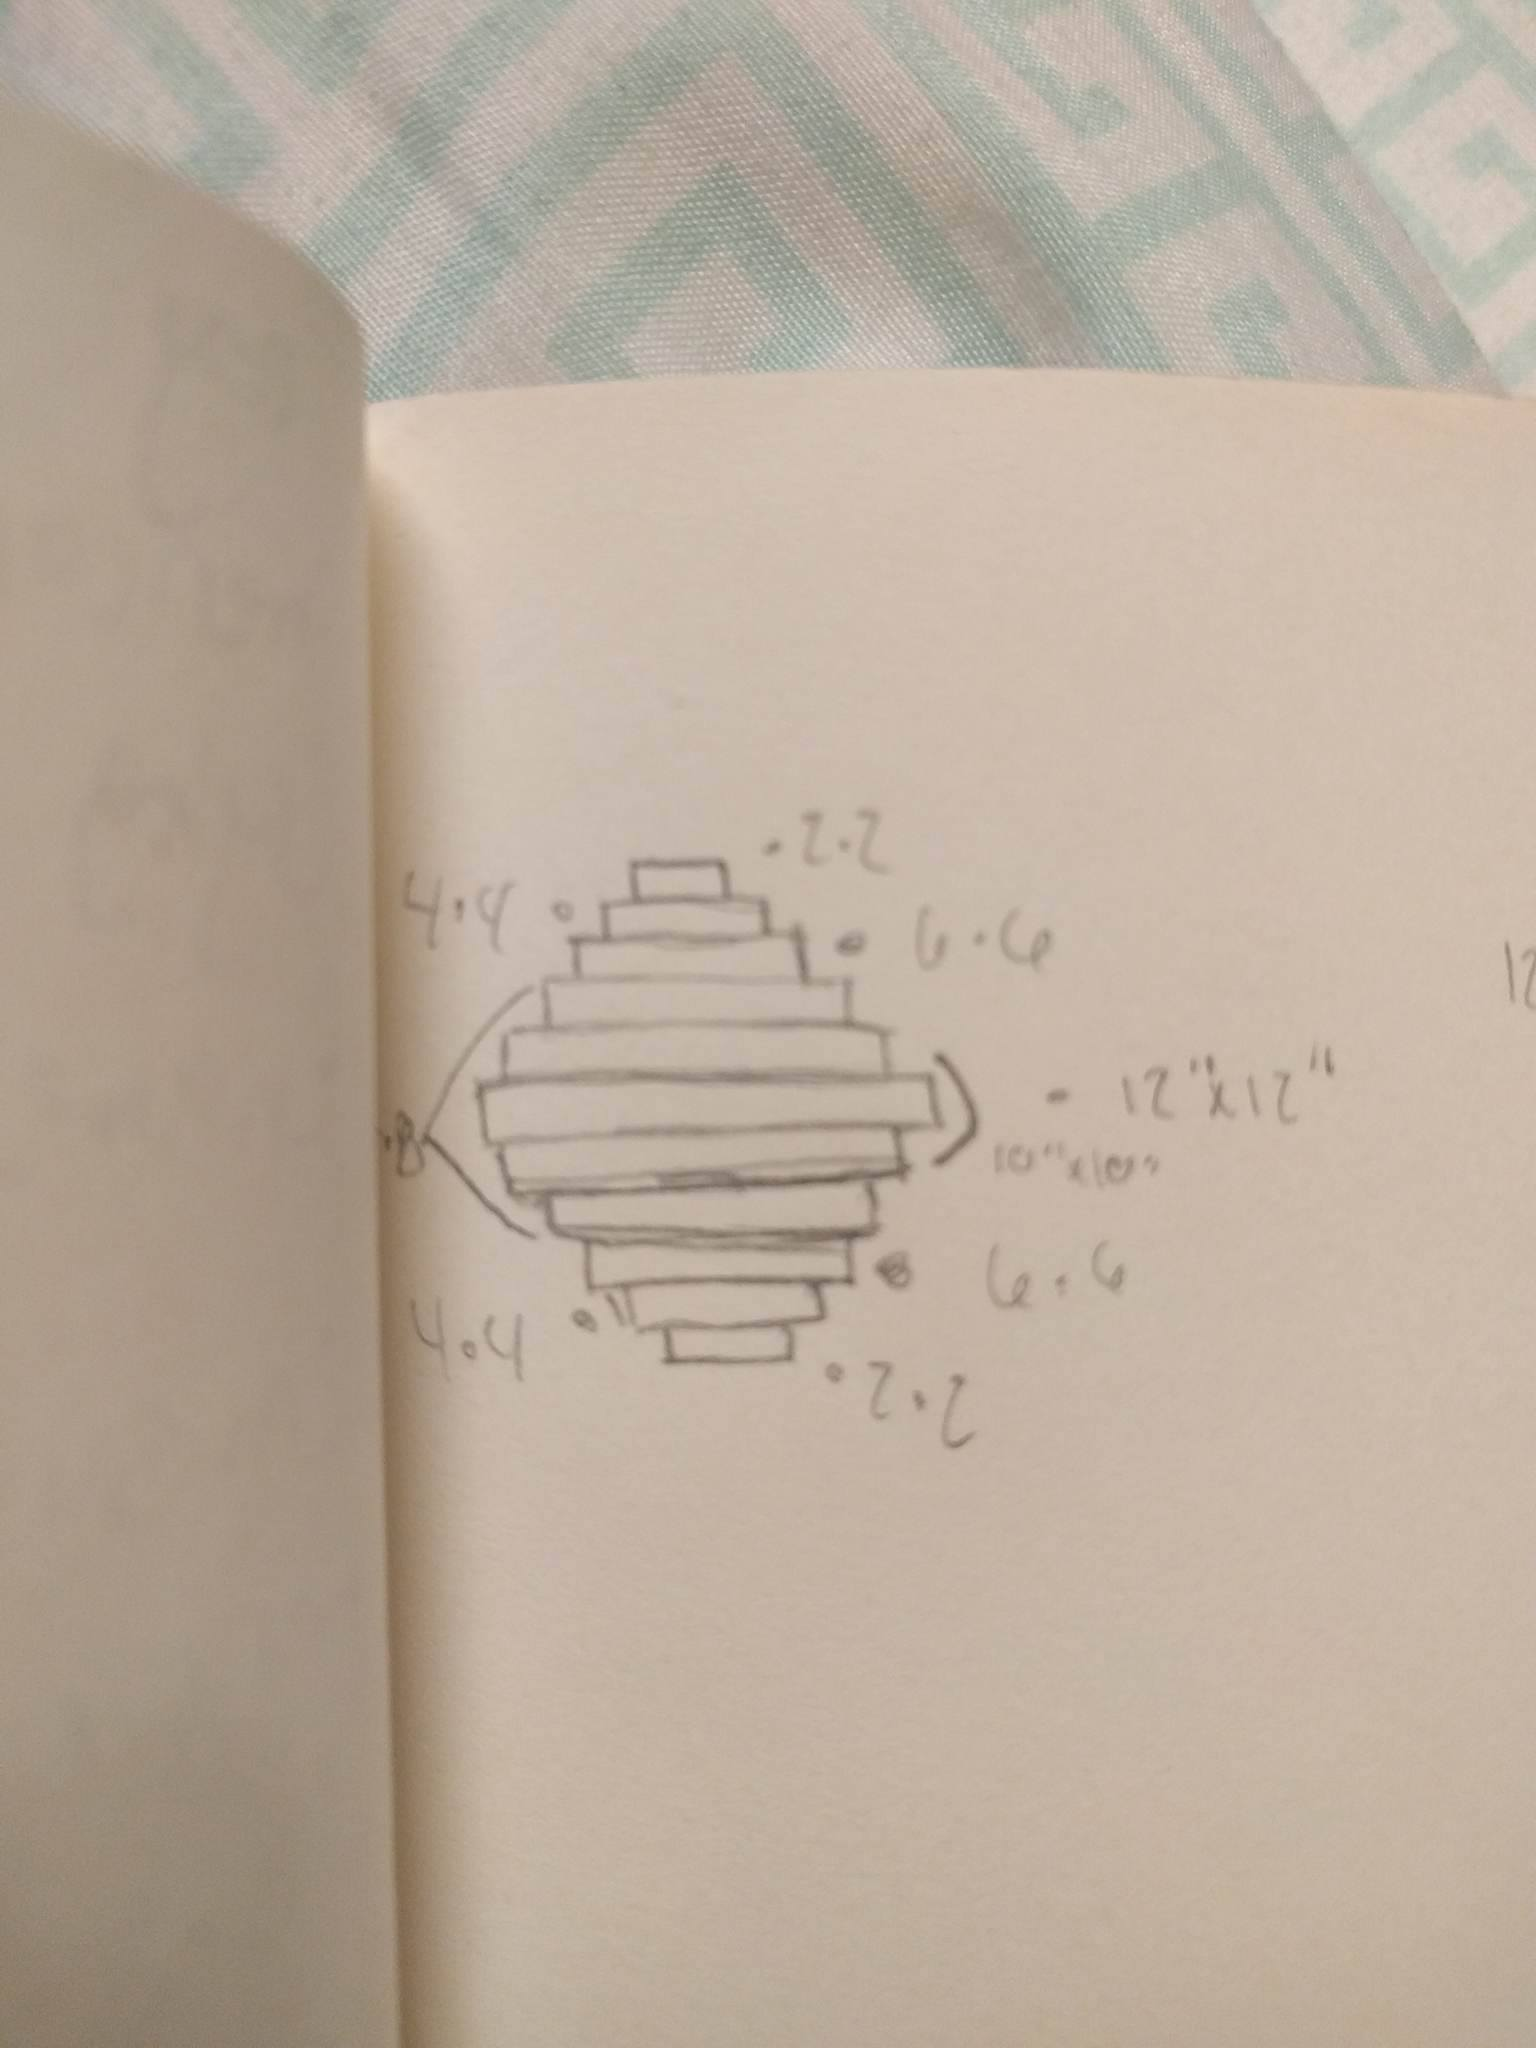 .2.2
4.4
6.6
12
12"x12"
.8
10"x10"
6.6
4.4
.2.2